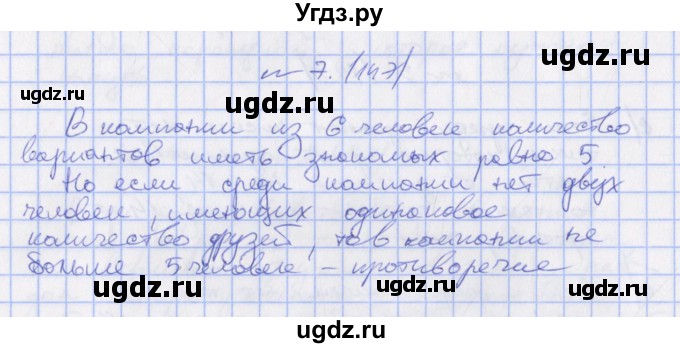 Угдз.ру
n 7. (147)
ugdz.ru ugdz.ru ugdz.ru
В компании из 6 человек количество
вариантов иметь знакомых равно 5.
ugdz.ru ugdz.ru
Но если среди компании нет двух
человек, имеющих одинаковое
ugdz.ru ugdz.ru ugdz.ru
количество друзей, то в компании не
больше 5 человек – противоречие
ugdz.ru ugdz.ru
ugdz.ru